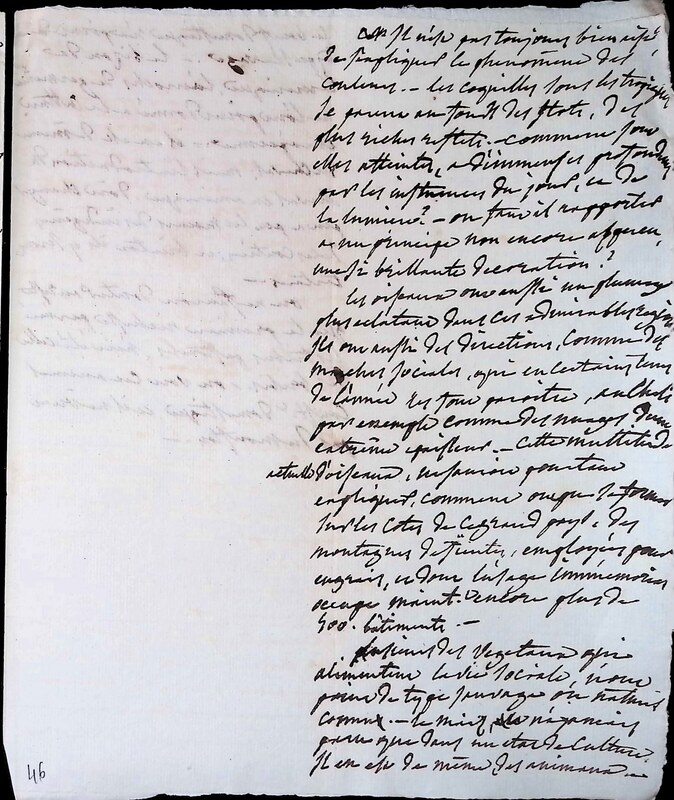 Il n'est pas toujours bien aisé,
d'expliquer le phénomène des
couleurs. – les coquilles sous les tropiques
se parent au fond des flots, des
plus riches reflets. – comment sont
elles atteintes, a d'immenses profondeurs
par les influences du jour, et de
la lumiere? – ou faut il rapporter
a un principe non encore apperçu,
une si brillante decoration?
les oiseaux ont aussi un plumage
plus eclatant dans ces admirables regions
Ils ont aussi des directions, comme des
marches sociales, qui en certains tems
de l'année les font paroitre, au Chili
par exemple comme des nuages d'une
extrême epaisseur. – Cette multitude
actuelle d'oiseaux, ne sauroit pourtant
expliquer, comment ont pu se former
sur les cotes de ce grand pays, des
montagnes de fiente, employées pour
engrais, et dont l'usage immémorial
occupe maint. encore plus de
500. bâtiments. –
plusieurs des vegetaux qui
alimentent la vie sociale, n'ont
point de type sauvage ou naturel
connu. – le maïs, n'a jamais
paru que dans un etat de culture.
Il en est de même des animaux –
46